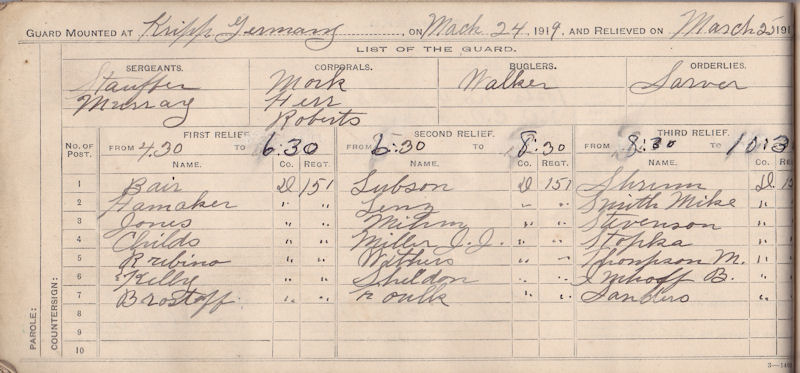 GUARD MOUNTED AT Kripp, Germany, ON Mach 24, 1919, AND RELIEVED ON March 25 191
LIST OF THE GUARD.
SERGEANTS. CORPORALS. BUGLERS. ORDERLIES.
Stauffer Mock Walker Sarver
Murray Herr
Roberts
FIRST RELIEF. SECOND RELIEF. THIRD RELIEF.
No. OF POST. FROM 4.30 TO 6:30 FROM 6:30 TO 8:30 FROM 8:30 TO 10:3
NAME. Co. REGT. NAME. Co. REGT. NAME. Co.
1 Bair D 151 Sybson D 151 Shrum D. 15
2 Hamaker " " Lenz " " Smith Mike "
3 Jones " " Mihm " " Stevenson "
4 Childs " " Miller J. J. " " Stopka "
5 Bribino " " Withers " " Thompson M. "
6 Kelly " " Sheldon " " Imhoff B. "
7 Brostoff " " Foulk " " Sanders "
8
9
10
PAROLE:
COUNTERSIGN: